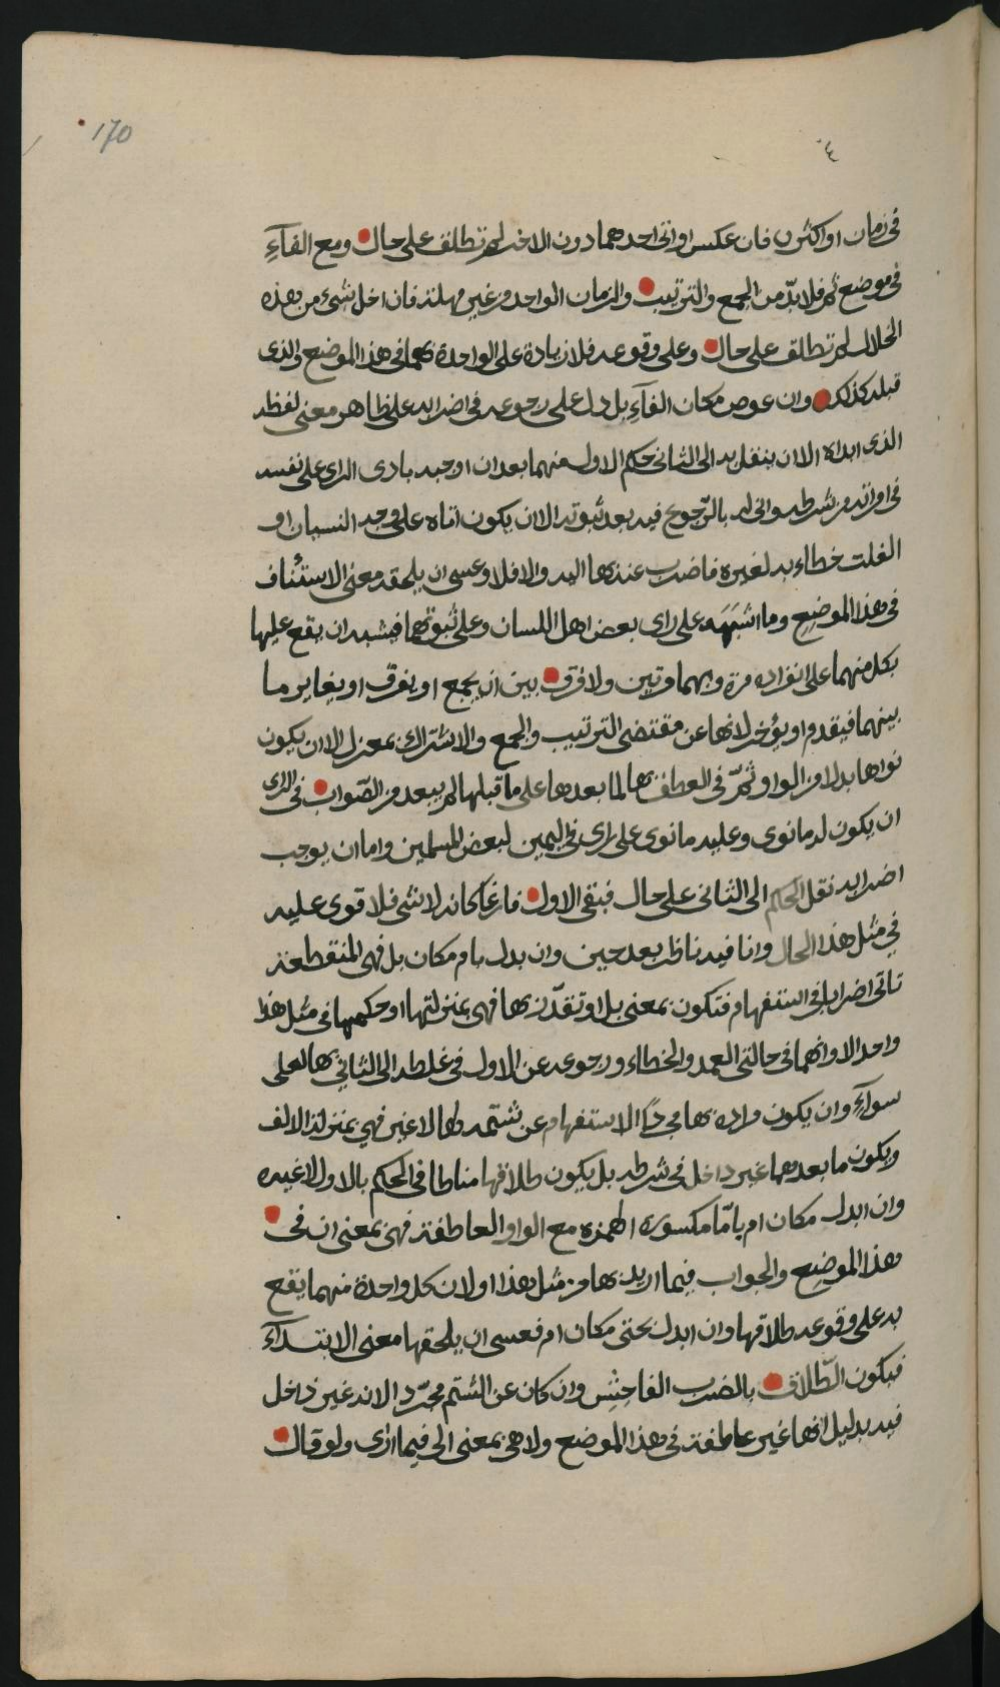 170
٤
في زمان او اكثر فان عكس او اتى احدهما دون الاخر لم تطلق على حال ومع الفآء
في موضع ثم فلا بدّ من الجمع والترتيب والزمان الواحد من غير مهلة فان اخل شيء من هذه
الخلال لم تطلق على حال وعلى وقوعه فلا زيادة على الواحدة بهما في هذا الموضع والذي
قبله كذلك وان عوض مكان الفآء بل دل على رجوعه في اضرابه على ظاهر معنى لفظه
الذي ابداه الا ان ينقل به الى الثاني حكم الاول منهما بعد ان اوجبه بادى الراى على نفسه
في امراته من شرطه وانى له بالرّجوع فيه بعد ثبوته الا ان يكون اتاه على وجه النسيان او
الغلت خطاء به لغيره فاضرب عندها اليه والا فلا وعسى ان يلحقه معنى الاستئناف
في هذا الموضع وما اشبَهَه على راى بعض اهل اللسان وعلى ثبوتهما فيشبه ان يقع عليها
بكل منهما على انفراده مرة وبهما مرتين ولا فرق بين ان يجمع او يفرق او يغاير ما
بينهما فيقدم او يؤخر لانها عن مقتضى الترتيب والجمع والاشتراك بمعزل الا ان يكون
نواها بدلا من الواو ثمّ في العطف بها لما بعدها على ما قبلها لم يبعد من الصّواب في الراى
ان يكون له ما نوى وعليه ما نوى على راى في اليمين لبعض المسلمين واما ان يوجب
اضرابه نقل الحكم الى الثاني على حال فبقى الاول فارغا كانه لا شي فلا قوى عليه
في مثل هذا الحال وانا فيه ناظر بعد حين وان بدل بام مكان بل فهى المنقطعة
تاتى اضرابا في استفهام فتكون بمعنى بل او تقدّر بها فهى بمنزلتها او حكمهما في مثل هذا
واحد الا وانهما في حالتى العمد والخطاء ورجوعه عن الاول في غلطه الى الثاني بها لعلى
سوآء وان يكون مراده بها مجردًا الاستفهام عن شتمه لها لا غير فهي بمنزلة الالف
ويكون ما بعدهما غير داخل في شرطه بل يكون طلاقها مناطا في الحكم بالاول لا غيره
وان ابدل مكان ام بامّا مكسورة الهمزة مع الواو العاطفة فهى بمعنى ان في
هذا الموضع والجواب فيما اريد بها من مثل هذا او لان كل واحدة منهما يقع
به على وقوعه طلاقها وان ابدل بحتى مكان ام فعسى ان يلحقها معنى الابتدآء
فيكون الطّلاق بالضرب الفاحِش وان كان عن الشتم مجرّد الا انه غير داخل
فيه بدليل انها غير عاطفة في هذا الموضع ولا هى بمعنى الى فيما ارى ولو قال